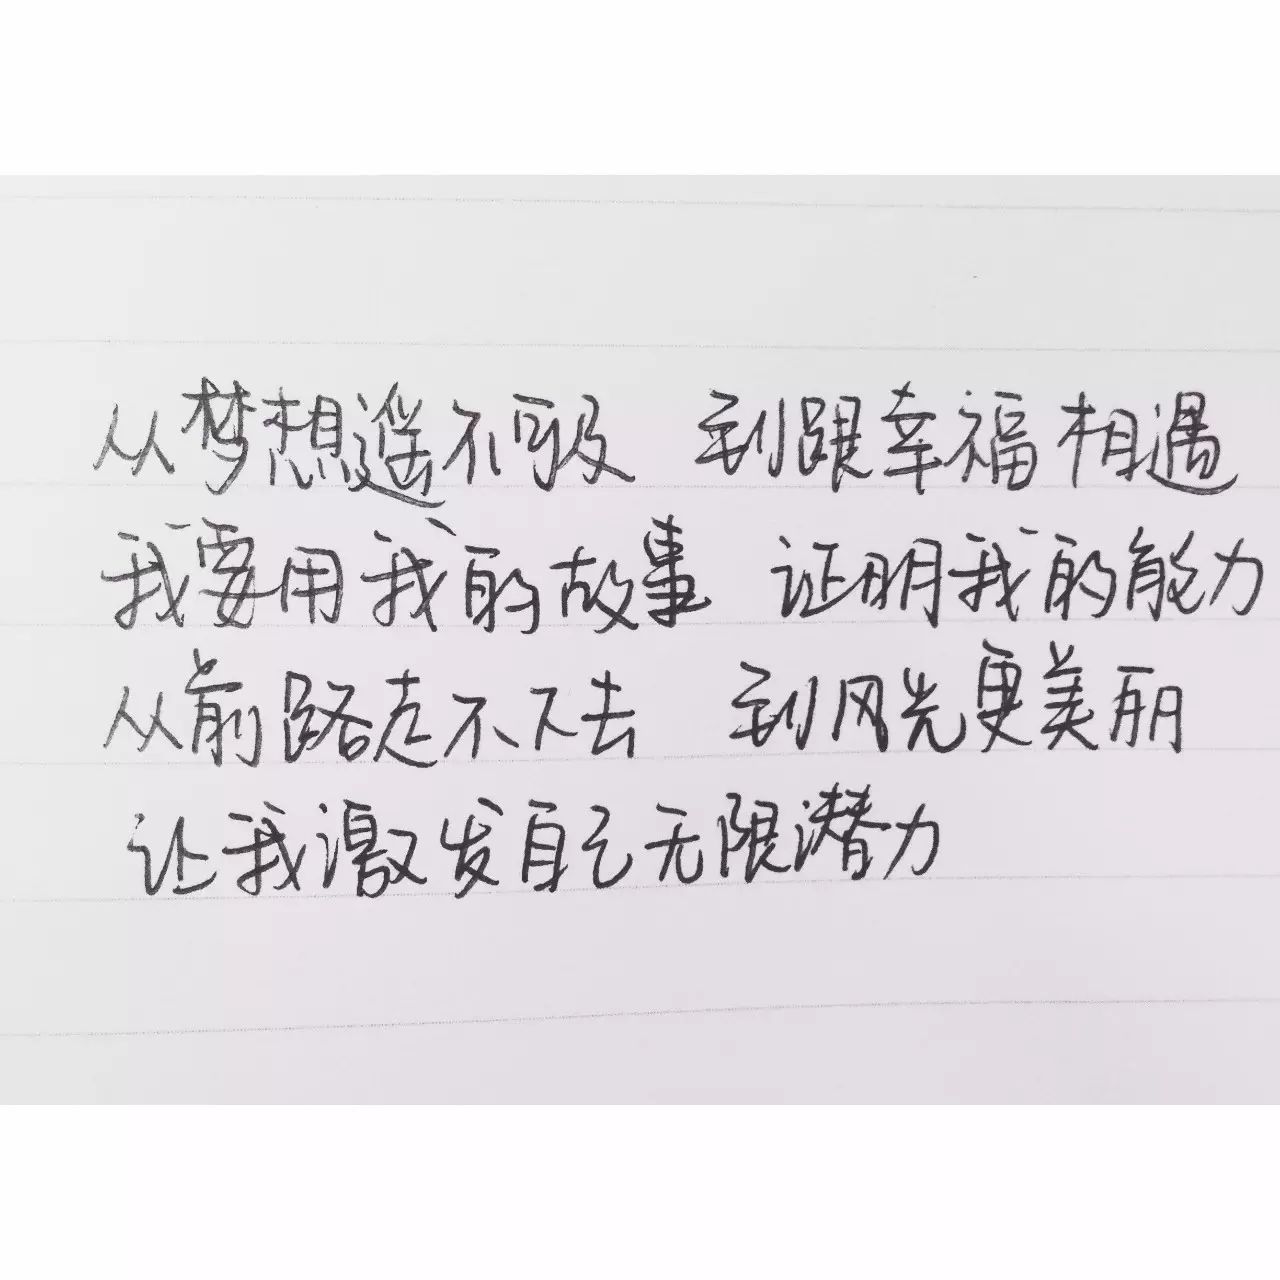 从梦想遥不可及 到跟幸福相遇
我要用我的故事 证明我的能力
从前路走不下去 到风光更美丽
让我激发自己无限潜力